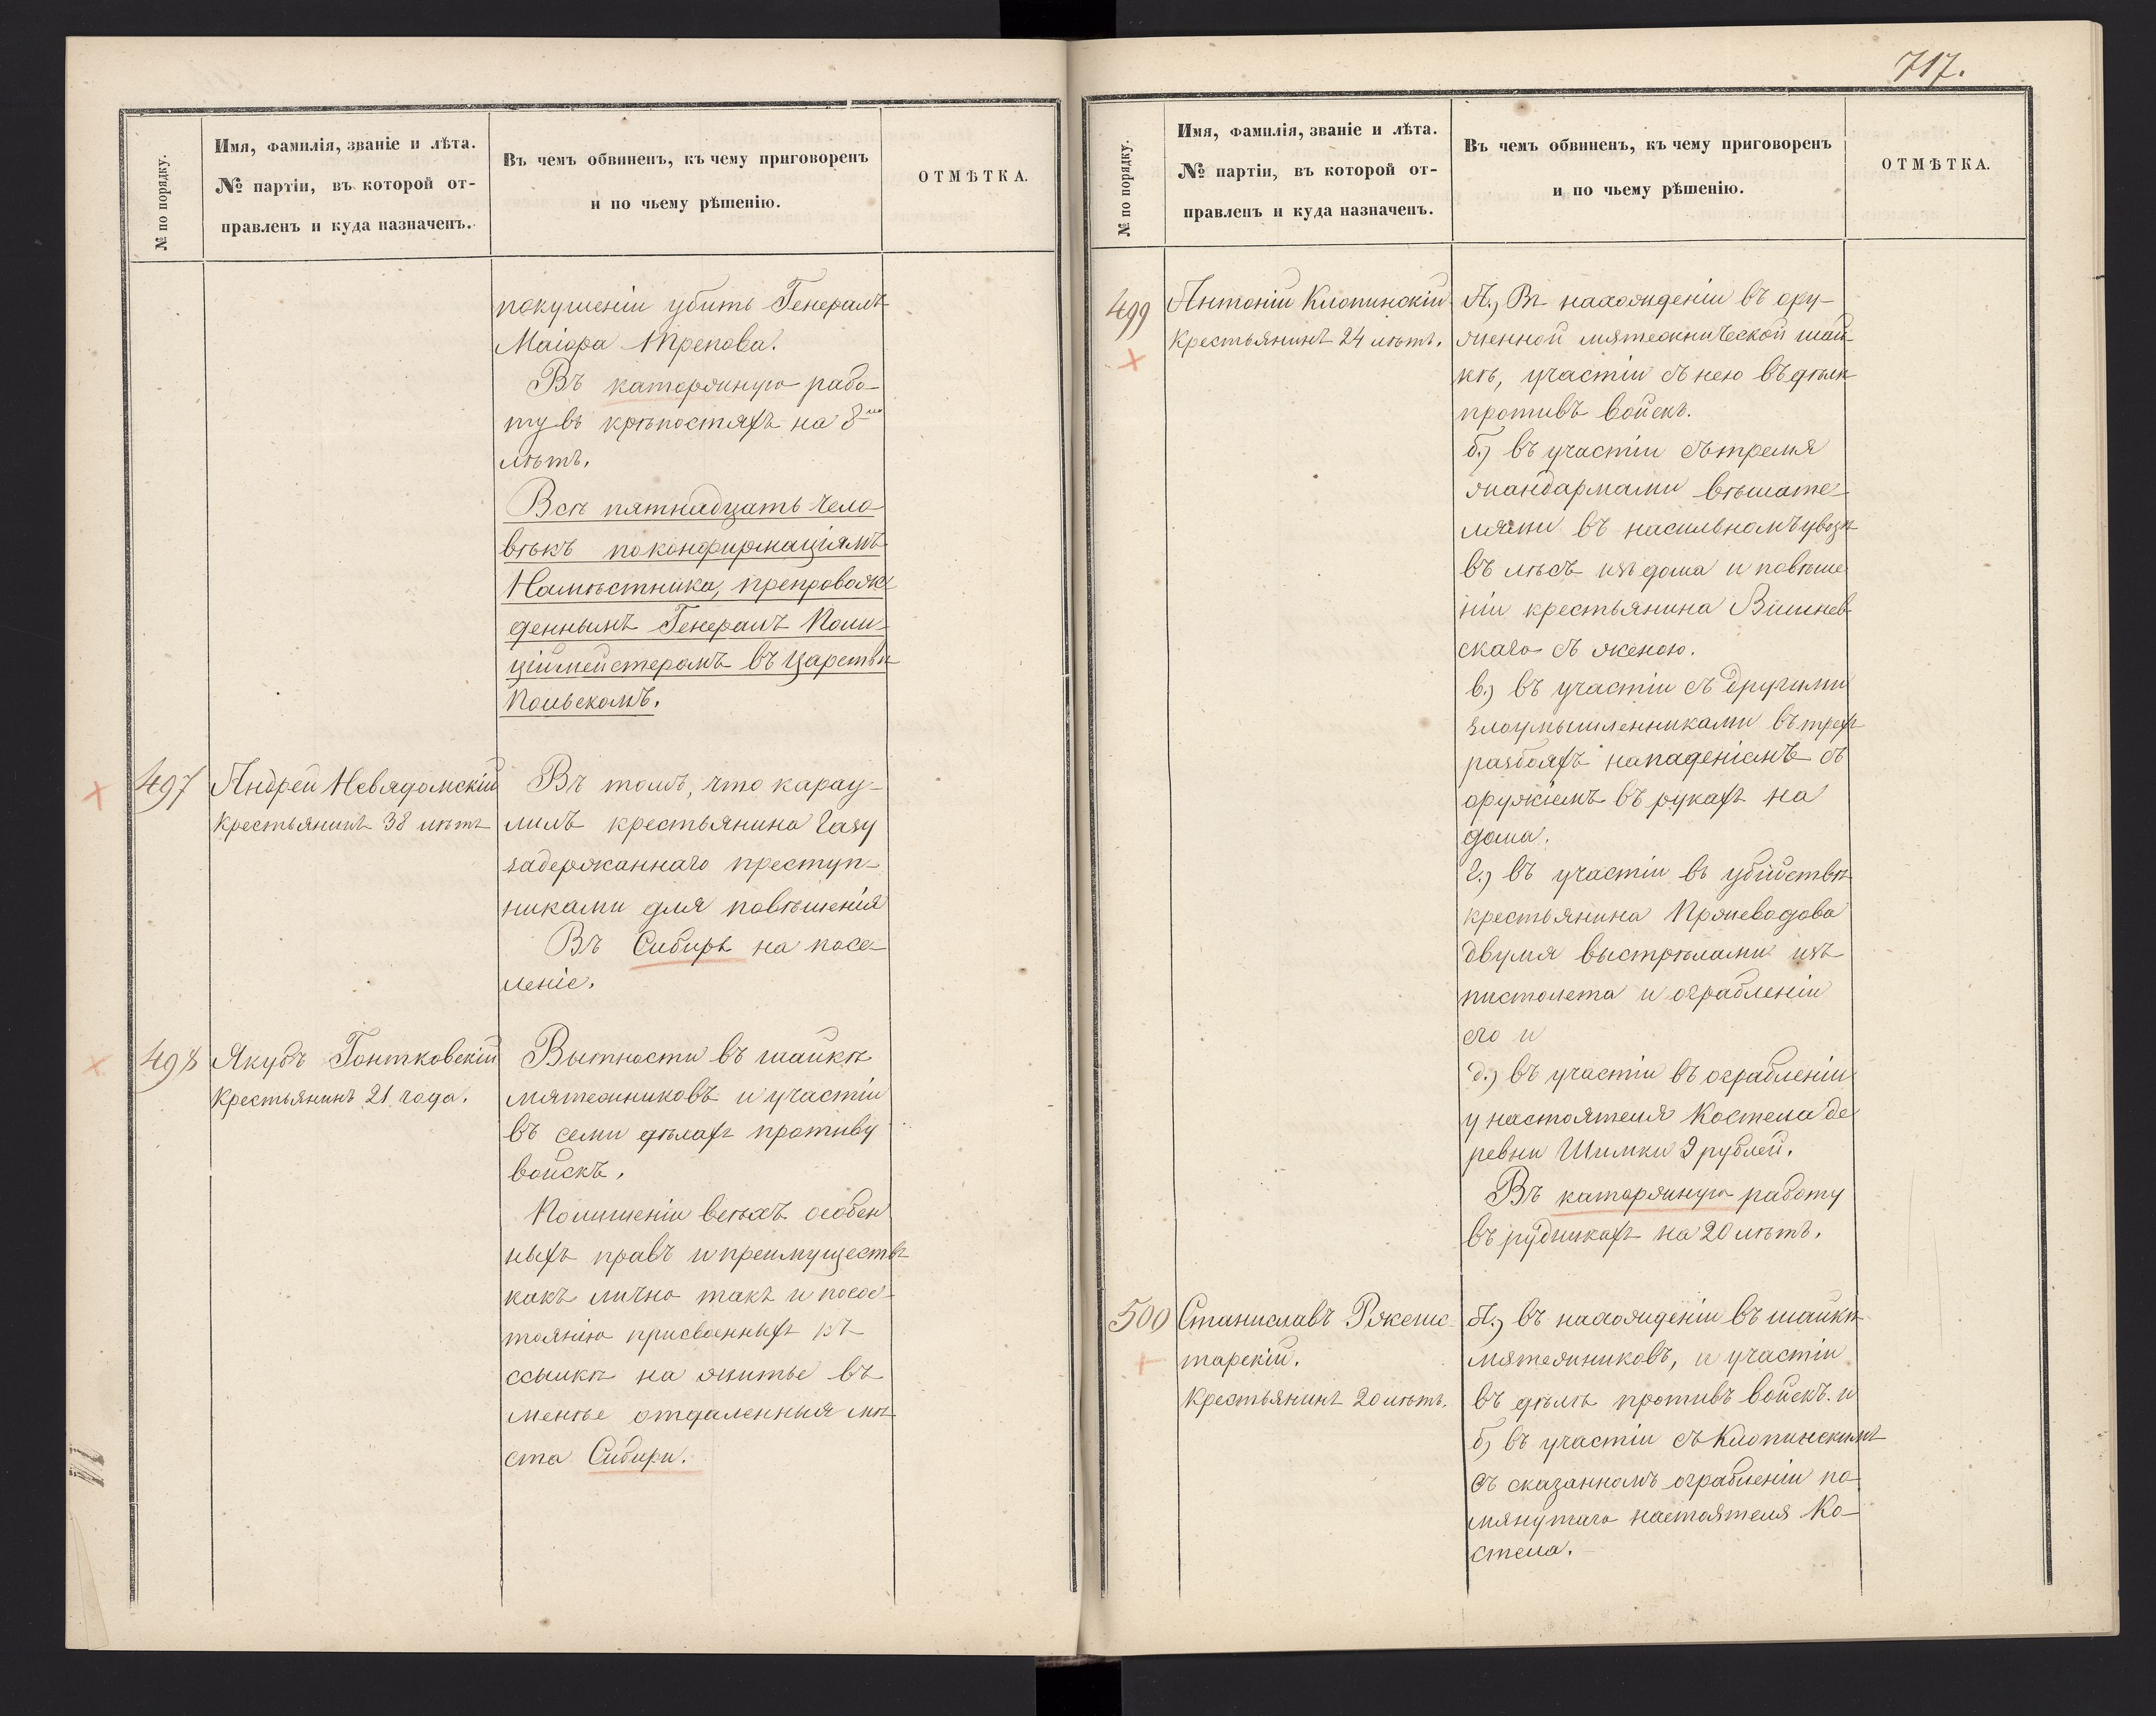 717.
№ по порядку.
Имя, фамилія, званіе и лѣта.
№ партіи, въ которой от-
правленъ и куда назначенъ.
Въ чемъ обвиненъ, къ чему приговоренъ
и по чьему рѣшенію.
ОТМѢТКА.
покушеніи убить Генералъ
Маіора Трепова.
Въ каторжную рабо-
ту въ крѣпостяхъ на 8
лѣтъ.
Всѣ пятнадцать чело
вѣкъ по конфирмаціямъ
Намѣстника, препровож
деннымъ Генералъ Поли
ціймейстеромъ въ Царствѣ
Польскомъ.
497
Андрей Невядомскій
Крестьянинъ 38 лѣтъ
Въ томъ, что карау-
лилъ крестьянина Газу
задержаннаго преступ-
никами для повѣшенія
Въ Сибирь на посе-
леніе.
498
Якубъ Гонтковскій
Крестьянинъ 21 года.
Бытности въ шайкѣ
мятежниковъ и участіи
въ семи дѣлахъ противу
войскъ.
По лишеніи всѣхъ особен
ныхъ правъ и преимуществъ
какъ лично такъ и по сос-
тоянію присвоенныхъ къ
ссылкѣ на житье въ
менѣе отдаленныя мѣ
ста Сибири.
№ по порядку.
Имя, фамилія, званіе и лѣта.
№ партіи, въ которой от-
правленъ и куда назначенъ.
Въ чемъ обвиненъ, къ чему приговоренъ
и по чьему рѣшенію.
ОТМѢТКА.
499
Антоній Клопинскій
Крестьянинъ 24 лѣтъ.
А.) Въ нахожденіи въ ору-
женной мятежнической шай
кѣ, участіи съ нею въ дѣлѣ
противъ войскъ.
б.) въ участіи съ тремя
жандармами вѣшате-
лями въ насильномъ увозѣ
въ лѣсъ изъ дома и повѣше
ніи крестьянина Вишнев-
скаго съ женою.
в.) въ участіи съ другими
злоумышленниками въ трехъ
разбояхъ нападеніемъ съ
оружіемъ въ рукахъ на
дома.
г.) въ участіи въ убійствѣ
крестьянина Пржеводова
двумя выстрѣлами изъ
пистолета и ограбленіи
его и
д.) въ участіи въ ограбленіи
у настоятеля Костела де
ревни Шимки 9 рублей.
Въ каторжную работу
въ рудникахъ на 20 лѣтъ.
500
Станиславъ Ржемис-
тарскій.
Крестьянинъ 20 лѣтъ.
А.) въ нахожденіи въ шайкѣ
мятежниковъ, и участіи
въ дѣлѣ противъ войскъ. и
б) въ участіи съ Клопинскимъ
въ сказанномъ ограбленіи по
мянутаго настоятеля Ко-
стела.